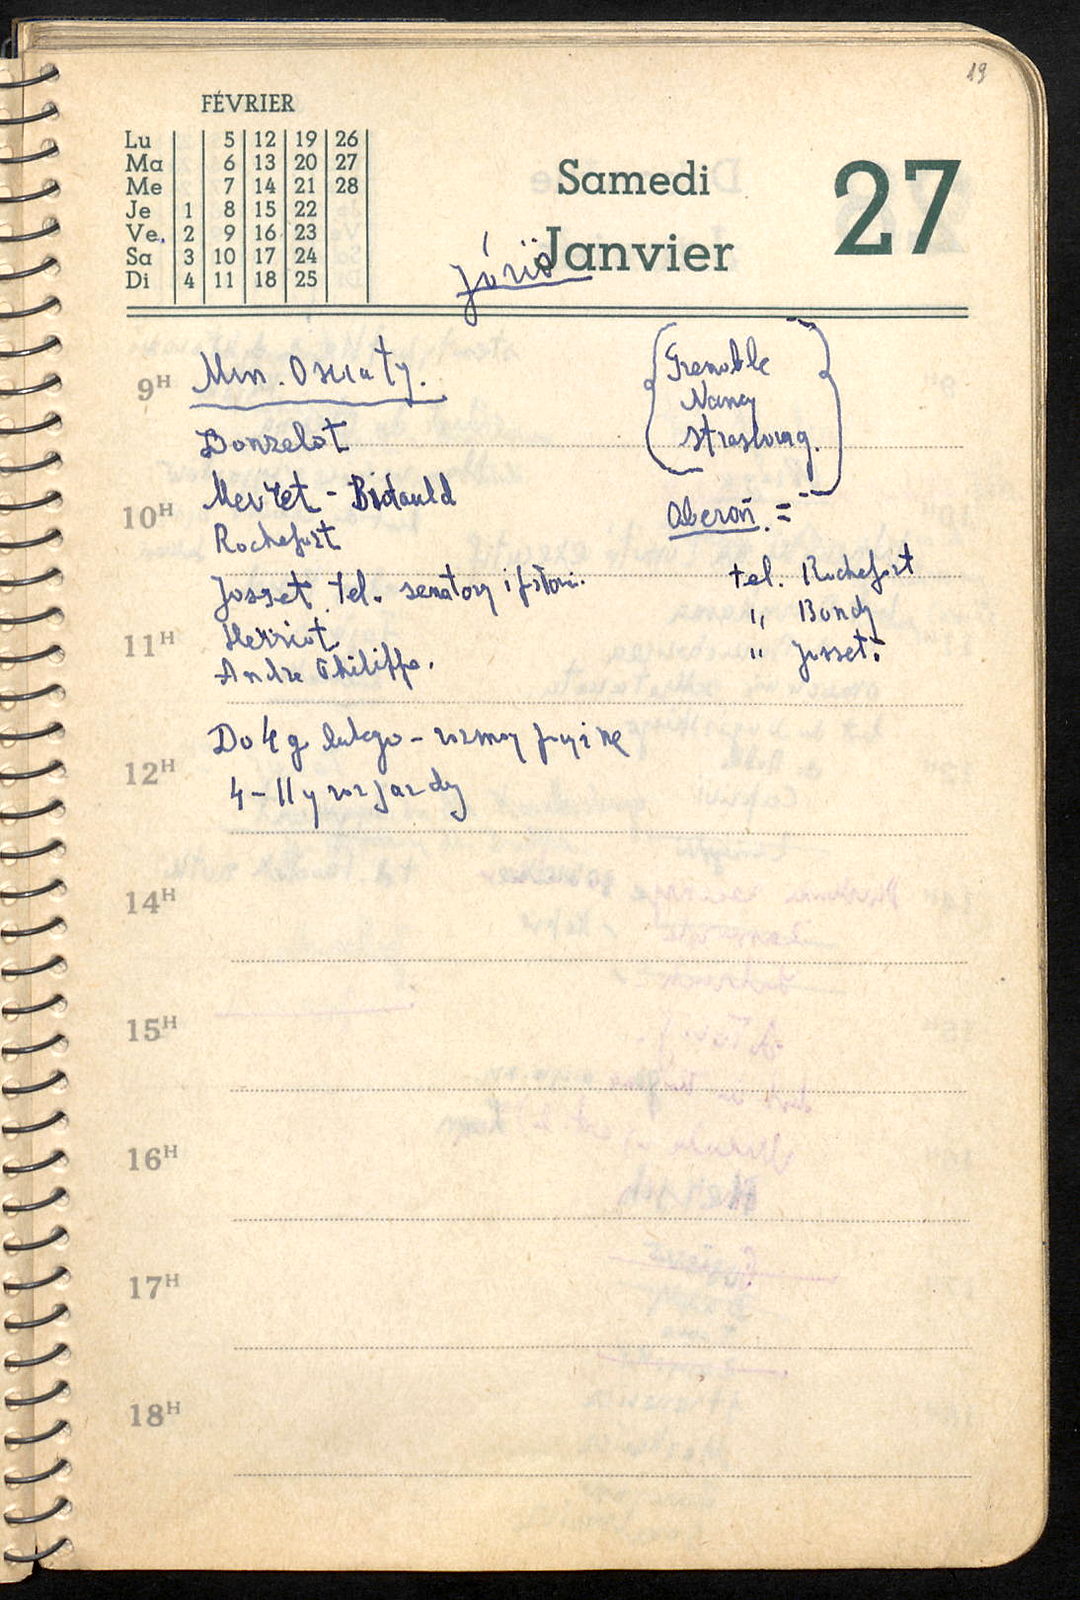 19
FÉVRIER
Lu 5 12 19 26
Ma 6 13 20 27
Me 7 14 21 28
Je 1 8 15 22
Ve 2 9 16 23
Sa 3 10 17 24
Di 4 11 18 25
Samedi
Janvier
27
9H
Min. Oświaty.
Donzelot
Mevret - Bidauld
10H
Rochefort
Josset tel. senatory i
11H
Herriot
Andre Philippe.
Do 4 g lutego -
12H
4-11 y rozjazdy
Grenoble
Nancy
Strasbourg.
Oberon. =
tel. Rochefort
" Bondy
" Josset:
14H
15H
16H
17H
18H